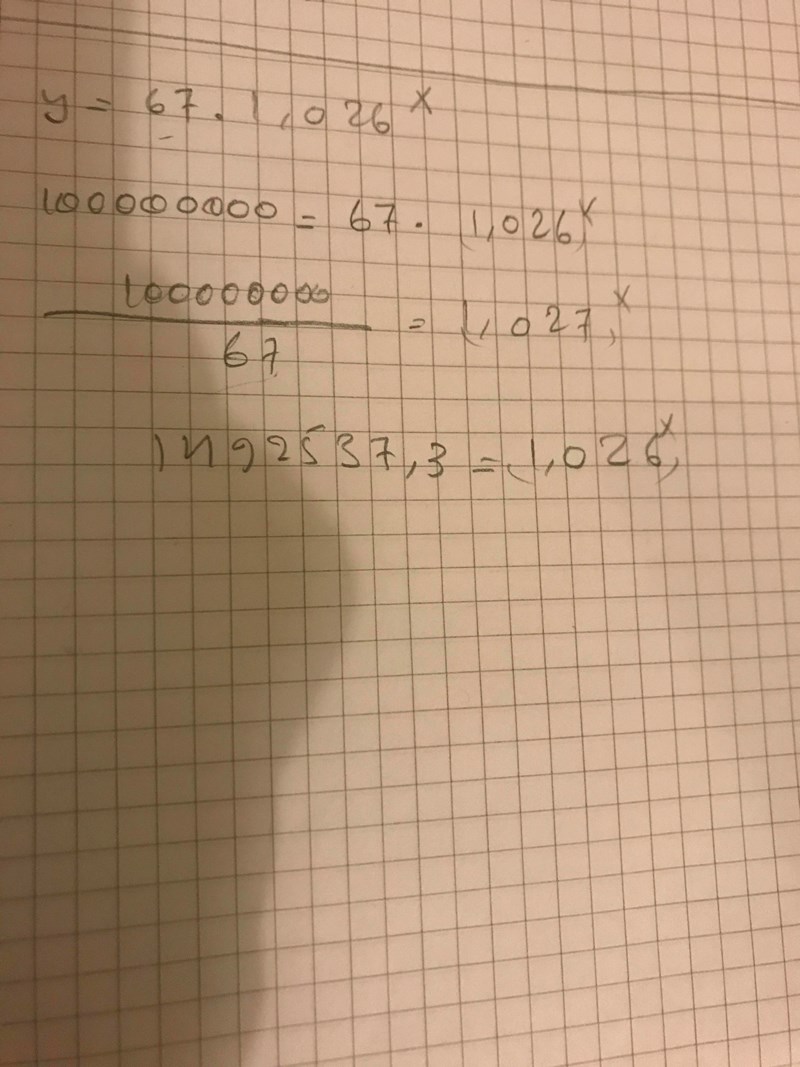 y = 67 · 1,026^x
100000000 = 67 · (1,026)^x
100000000 / 67 = (1,027)^x
1492537,3 = (1,026)^x